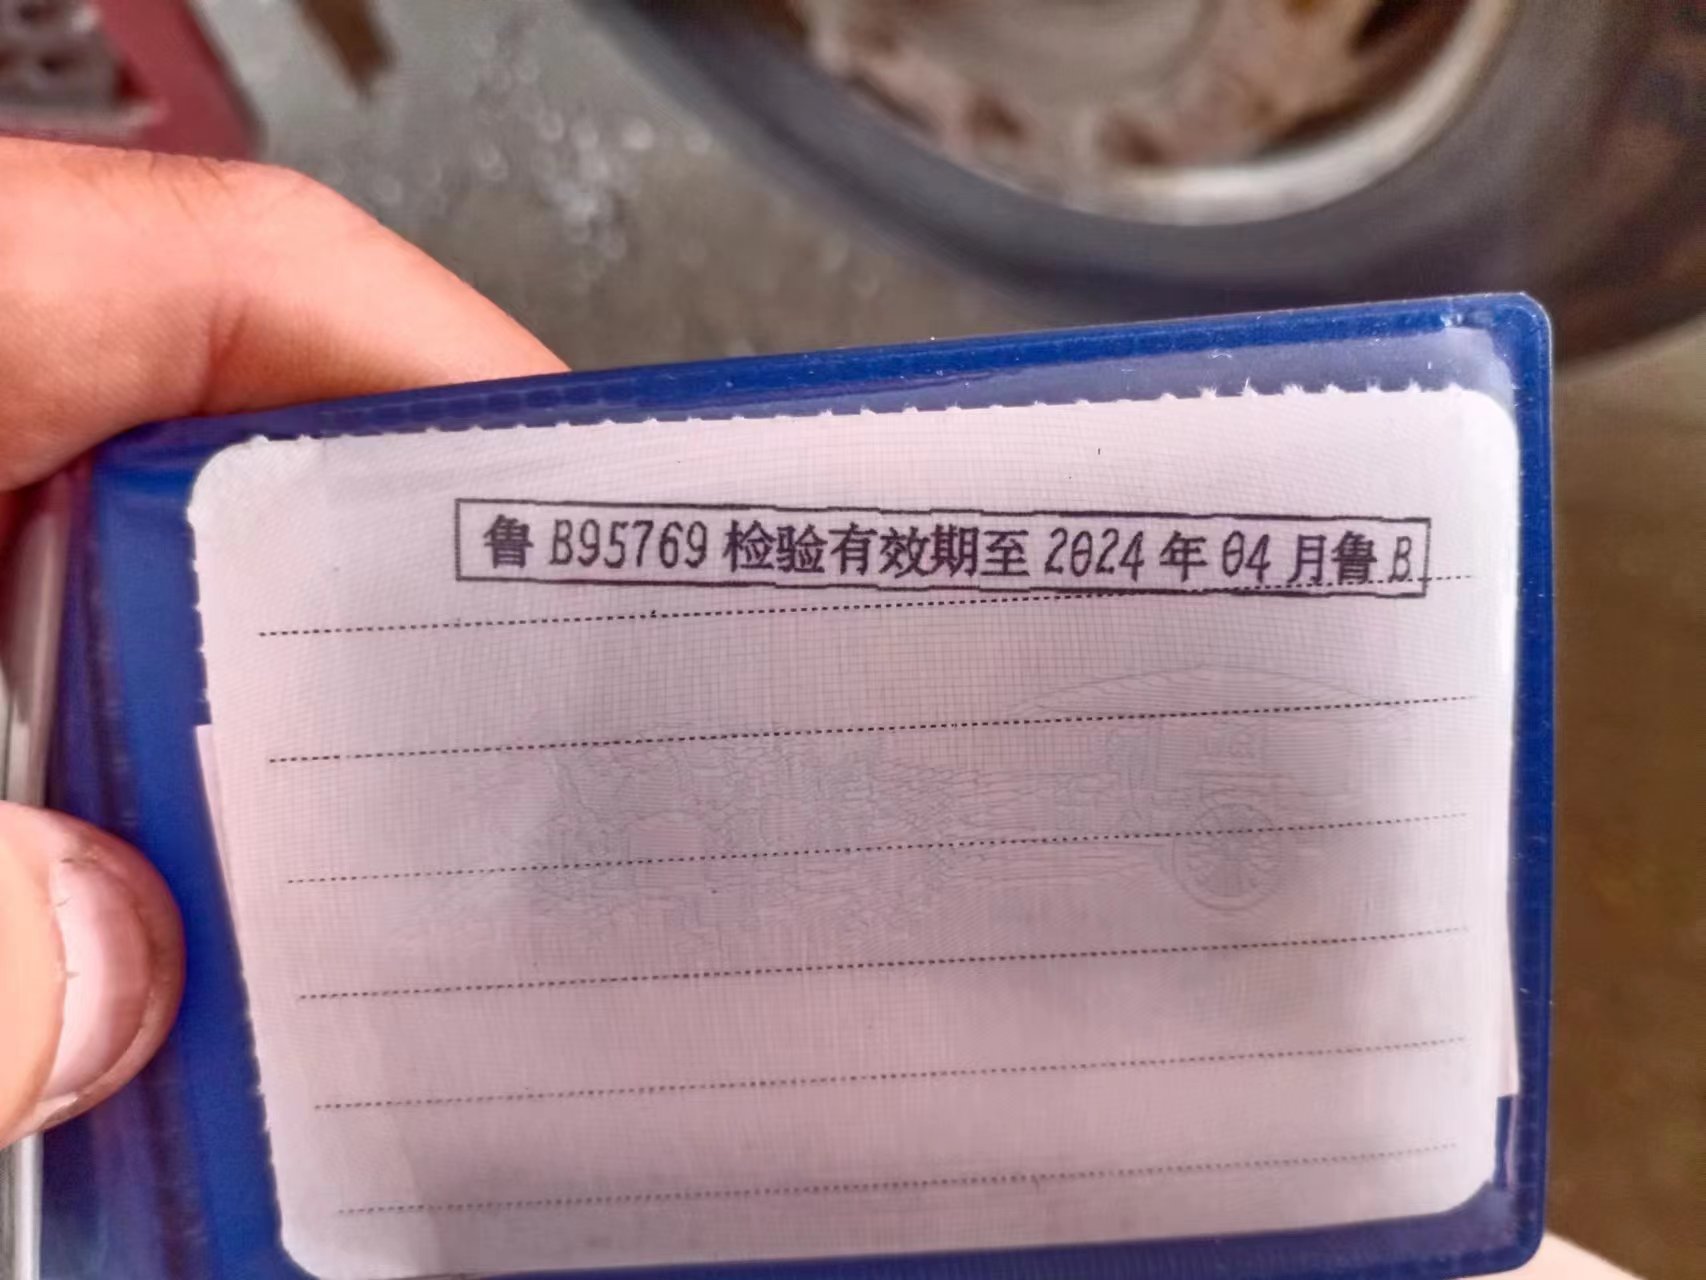 鲁 B95769 检验有效期至 2024 年 04 月鲁 B